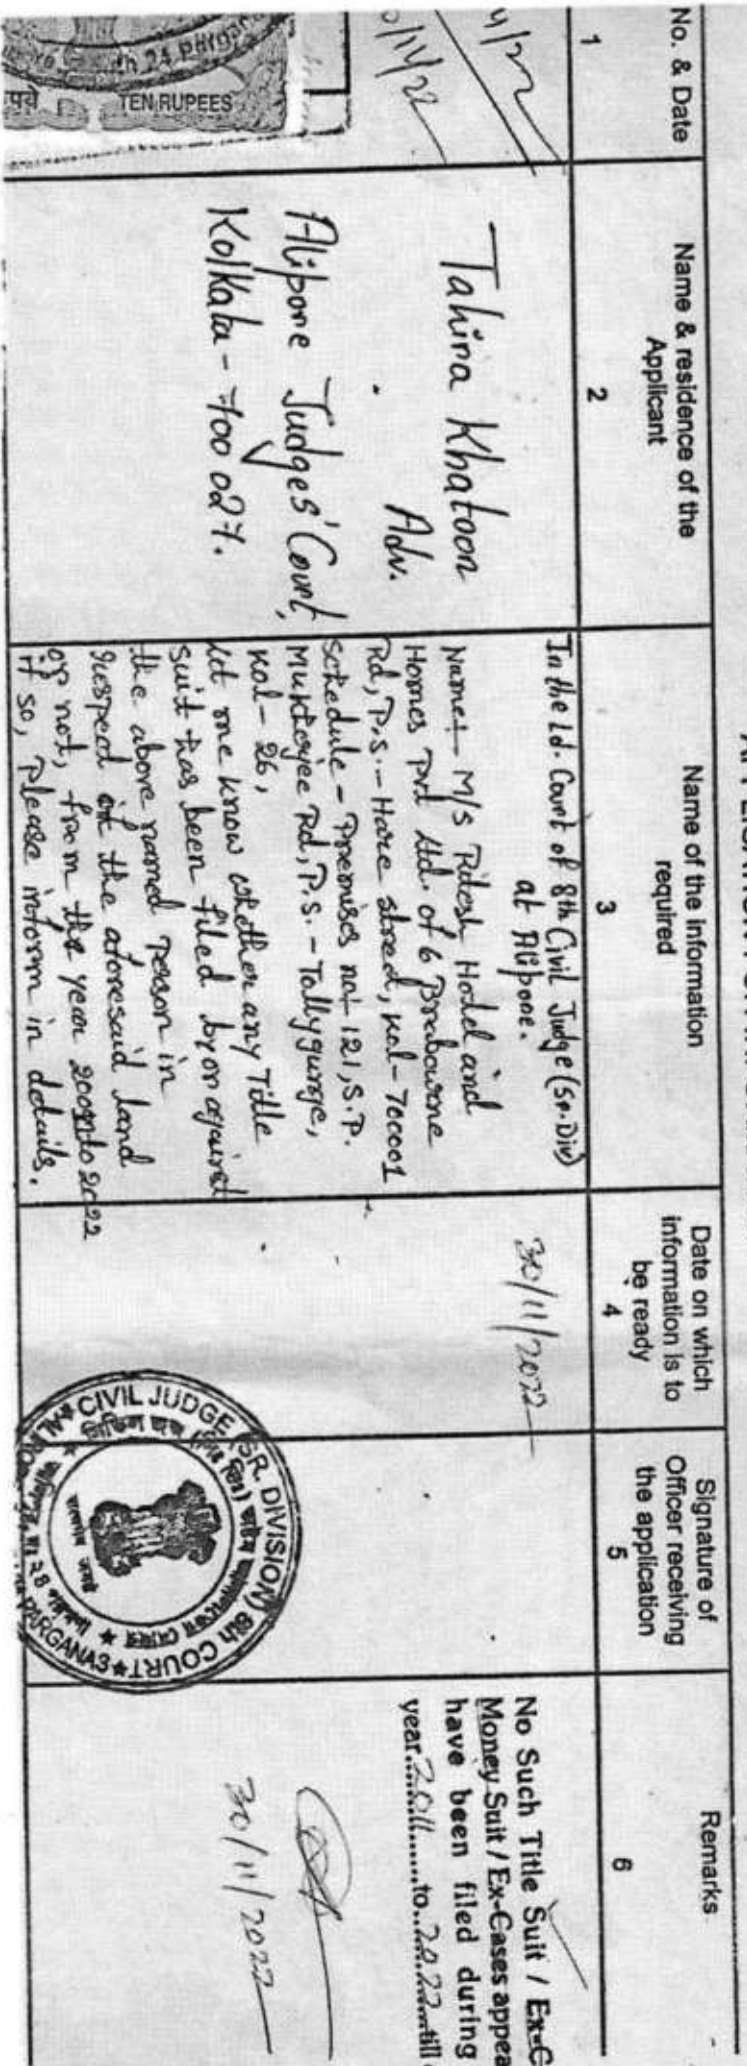 APPLICATION FOR INFORMATION
No. & Date
Name & residence of the
Applicant
Name of the information
required
Date on which
information is to
be ready
Signature of
Officer receiving
the application
Remarks
1
2
3
4
5
6
4/22
0/11/22
TEN RUPEES
Tahira Khatoon
Adv.
Alipore Judges' Court,
Kolkata - 700 027.
In the Ld. Court of 8th Civil Judge (Sr. Div)
at Alipore.
Name:- M/S Ritesh Hotel and
Homes Pvt Ltd. of 6 Brabourne
Rd, P.S. - Hare street, Kol - 700001
Schedule - Premises no:- 121, S.P.
Mukherjee Rd, P.S. - Tallygunge,
Kol - 26,
Let me know whether any Title
suit has been filed by or against
the above named Person in
respect of the aforesaid land
or not, from the year to 2022
if so, Please inform in details.
30/11/2022
CIVIL JUDGE (SR. DIVISION) 8th COURT
PARGANAS
No Such Title Suit / Ex-C
Money Suit / Ex-Cases appea
have been filed during
year....2011......to..2022..till
30/11/2022